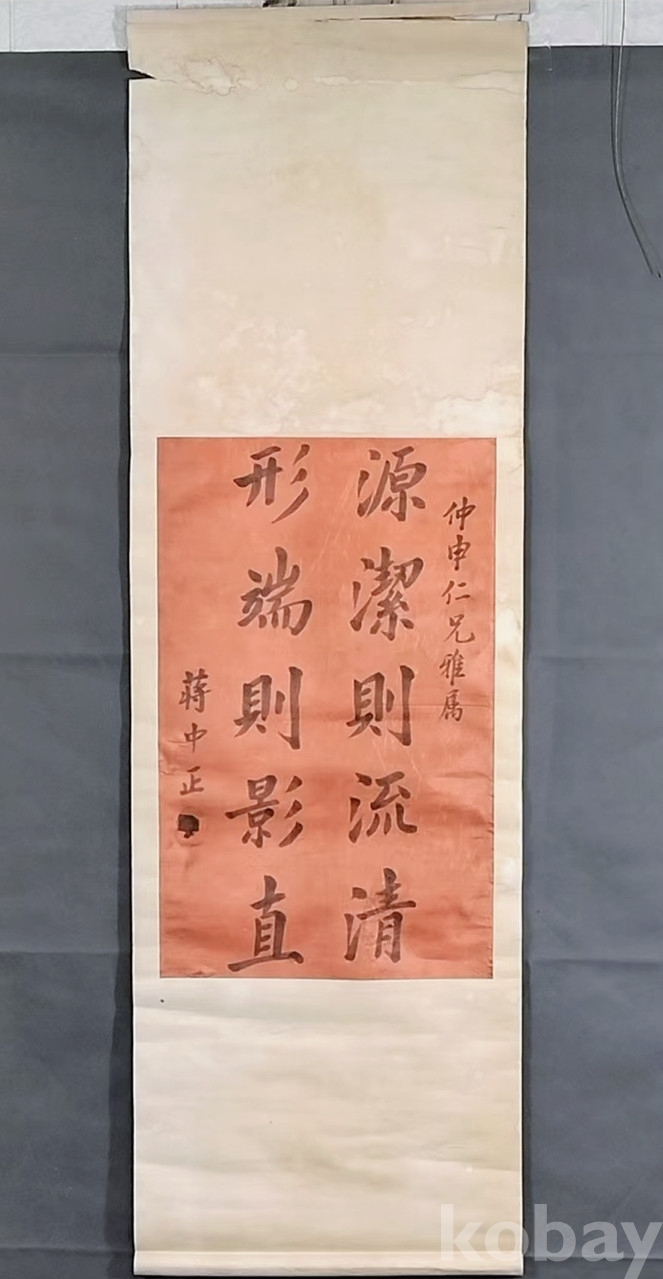 仲申仁兄雅属
源潔則流清
形端則影直
蔣中正
kobay